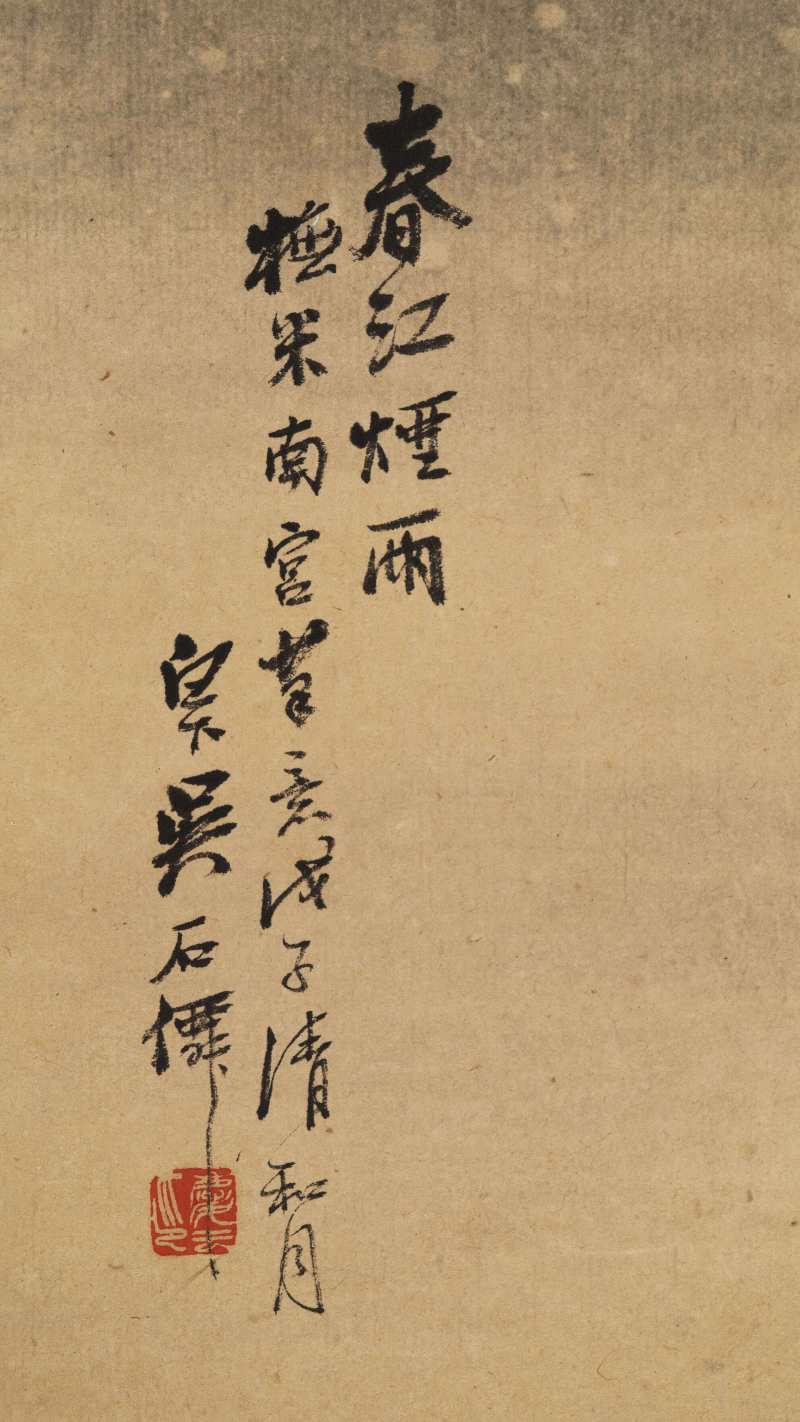 春江煙雨
橅米南宮筆意戊子清和月
白下吳石僊